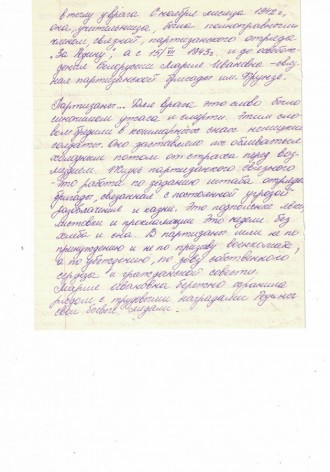 в тылу врага. С ноября месяца 1942 г.
она, учительница, была полноправным
членом, связной, партизанского отряда
"За Родину", а с 15/VI 1943 г. и до освобож-
дения Белоруссии Мария Ивановна - связ-
ная партизанской бригады им. Фрунзе.
Партизаны... Для врага это слово было
синонимом ужаса и смерти. Этим сло-
вом бредили в кошмарных снах немецкие
солдаты. Оно заставляло их обливаться
холодным потом от страха перед воз-
мездием. Жизнь партизанского связного
- это работа по заданию штаба отряда,
бригады, связанная с постоянной угрозой
разоблачения и казни. Это подпольные
листовки и прокламации. Это недели без
хлеба и сна. В партизаны шли не по
принуждению и не по призыву военкомата,
а по убеждению, по зову собственного
сердца и гражданской совести.
Мария Ивановна бережно хранила
рядом с трудовыми наградами Родины
свои боевые медали.